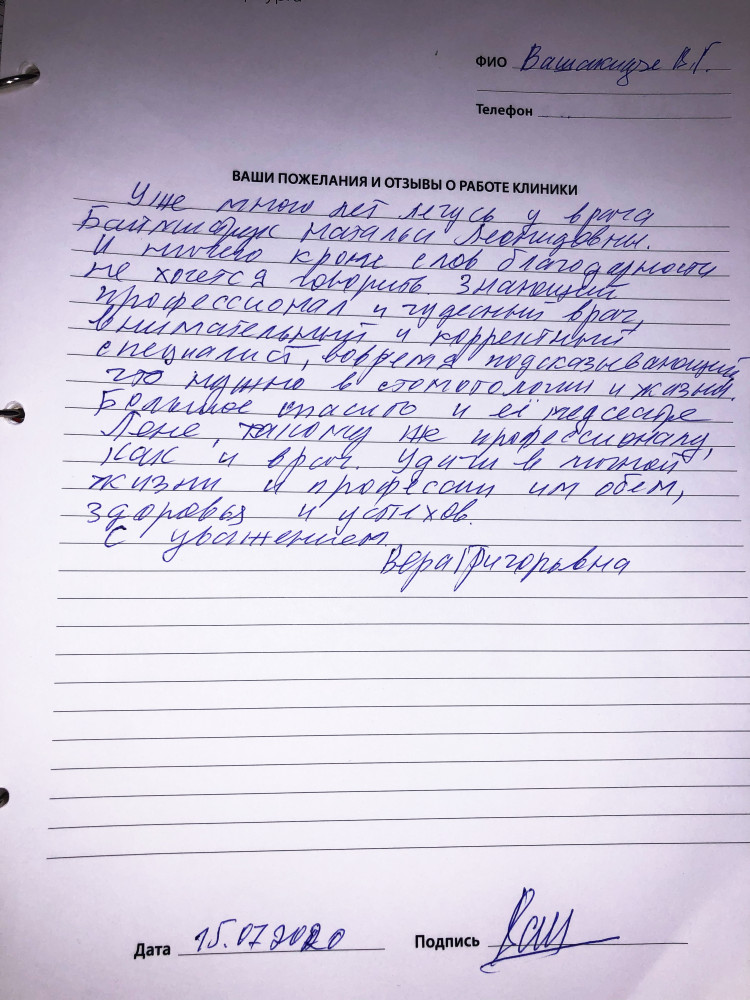 ФИО Вашакидзе В.Г.
Телефон
ВАШИ ПОЖЕЛАНИЯ И ОТЗЫВЫ О РАБОТЕ КЛИНИКИ
Уже много лет лечусь у врача
Натальи Леонидовны.
И ничего кроме слов благодарности
не хочется говорить Знающий
профессионал и чудесный врач,
внимательный и корректный
специалист, вовремя подсказывающий
что нужно в стоматологии и жизни.
Большое спасибо и её медсестре
Лене, такому же профессионалу,
как и врач. Удачи в личной
жизни и профессии им обеим,
здоровья и успехов.
С уважением
Вера Григорьевна
Дата 15.07.2020
Подпись Ваш